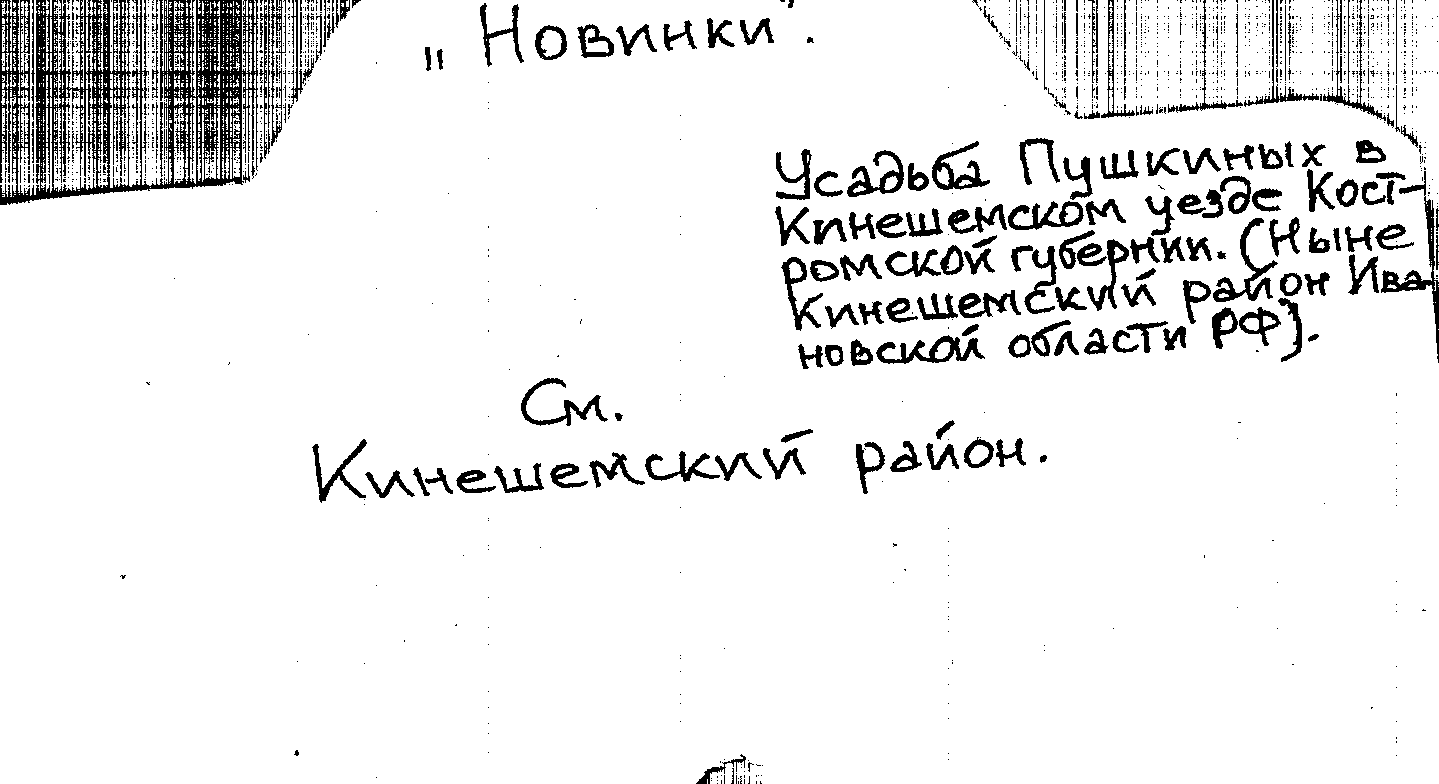 „Новинки".
Усадьба Пушкиных в
Кинешемском уезде Кост-
ромской губернии. (Ныне
Кинешемский район Ива-
новской области РФ).
См.
Кинешемский район.